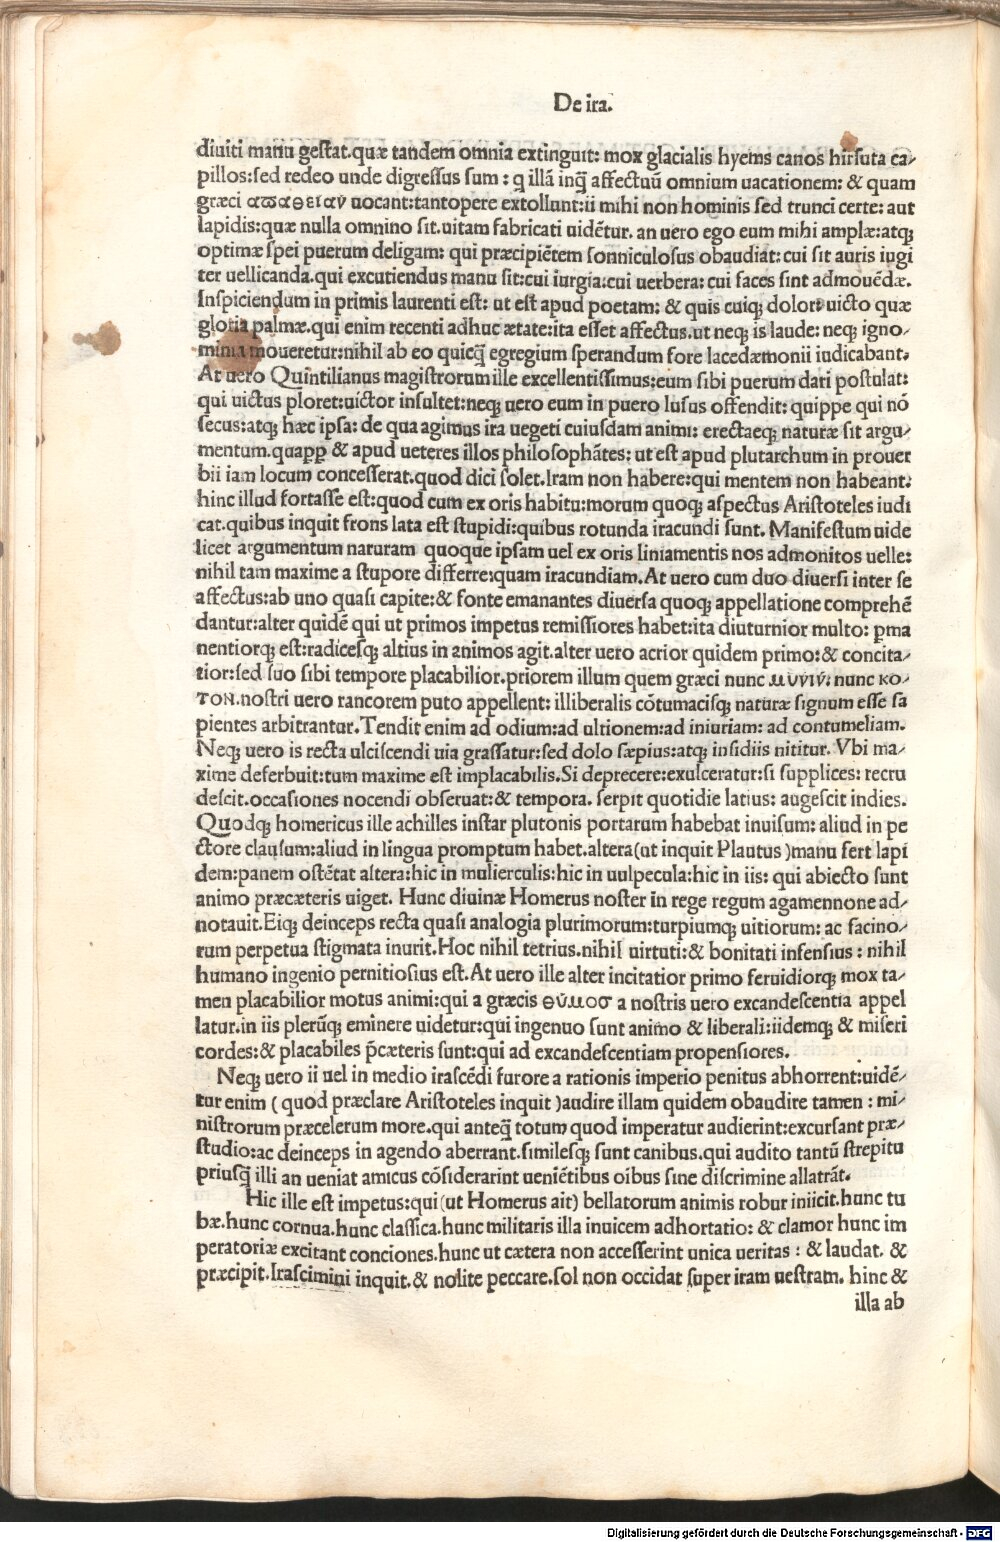 De ira.
diuiti manu gestat.quæ tandem omnia extinguit: mox glacialis hyems canos hirsuta ca/
pillos:sed redeo unde digressus sum: q illā inq̄ affectuū omnium uacationem: & quam
græci απαθειαν uocant:tantopere extollunt:ii mihi non hominis sed trunci certe: aut
lapidis:quæ nulla omnino sit.uitam fabricati uidētur. an uero ego eum mihi amplæ:atqꝫ
optimæ spei puerum deligam: qui præcipiētem sonniculosus obaudiat: cui sit auris iugi
ter uellicanda.qui excutiendus manu sit:cui iurgia:cui uerbera: cui faces sint admouēdæ.
Inspiciendum in primis laurenti est: ut est apud poetam: & quis cuiqꝫ dolor: uicto quæ
gloria palmæ.qui enim recenti adhuc ætate:ita esset affectus.ut neqꝫ is laude: neqꝫ igno/
minia moueretur:nihil ab eo quicq̄ egregium sperandum fore lacedæmonii iudicabant.
At uero Quintilianus magistrorum ille excellentissimus:eum sibi puerum dari postulat:
qui uictus ploret:uictor insultet:neqꝫ uero eum in puero lusus offendit: quippe qui nō
secus:atqꝫ hæc ipsa: de qua agimus ira uegeti cuiusdam animi: erectaeqꝫ naturæ sit argu/
mentum.quapꝓ & apud ueteres illos philosophātes: ut est apud plutarchum in prouer
bii iam locum concesserat.quod dici solet.Iram non habere:qui mentem non habeant:
hinc illud fortasse est:quod cum ex oris habitu:morum quoqꝫ aspectus Aristoteles iudi
cat.quibus inquit frons lata est stupidi:quibus rotunda iracundi sunt. Manifestum uide
licet argumentum naturam quoque ipsam uel ex oris liniamentis nos admonitos uelle:
nihil tam maxime a stupore differre:quam iracundiam.At uero cum duo diuersi inter se
affectus:ab uno quasi capite:& fonte emanantes diuersa quoqꝫ appellatione comprehē
dantur:alter quidē qui ut primos impetus remissiores habet:ita diuturnior multo: ꝑma
nentiorqꝫ est:radicesqꝫ altius in animos agit.alter uero acrior quidem primo:& concita/
tior:sed suo sibi tempore placabilior.priorem illum quem græci nunc μυνιν: nunc κο/
τον.nostri uero rancorem puto appellent: illiberalis cōtumacisqꝫ naturæ signum esse sa
pientes arbitrantur.Tendit enim ad odium:ad ultionem:ad iniuriam: ad contumeliam.
Neqꝫ uero is recta ulciscendi uia grassatur:sed dolo sæpius:atqꝫ insidiis nititur. Vbi ma/
xime deferbuit:tum maxime est implacabilis.Si deprecere:exulceratur:si supplices: recru
descit.occasiones nocendi obseruat:& tempora. serpit quotidie latius: augescit indies.
Quodqꝫ homericus ille achilles instar plutonis portarum habebat inuisum: aliud in pe
ctore clausum:aliud in lingua promptum habet.altera(ut inquit Plautus)manu fert lapi
dem:panem ostētat altera:hic in mulierculis:hic in uulpecula:hic in iis: qui abiecto sunt
animo præcæteris uiget. Hunc diuinæ Homerus noster in rege regum agamennone ad/
notauit.Eiqꝫ deinceps recta quasi analogia plurimorum:turpiumqꝫ uitiorum: ac facino/
rum perpetua stigmata inurit.Hoc nihil tetrius.nihil uirtuti:& bonitati infensius: nihil
humano ingenio pernitiosius est.At uero ille alter incitatior primo feruidiorqꝫ mox ta/
men placabilior motus animi:qui a græcis θύμοσ a nostris uero excandescentia appel
latur.in iis plerūqꝫ eminere uidetur:qui ingenuo sunt animo & liberali:iidemqꝫ & miseri
cordes:& placabiles p̄cæteris sunt:qui ad excandescentiam propensiores.
Neqꝫ uero ii uel in medio irascēdi furore a rationis imperio penitus abhorrent:uidē/
tur enim (quod præclare Aristoteles inquit)audire illam quidem obaudire tamen: mi/
nistrorum præcelerum more.qui anteq̄ totum quod imperatur audierint:excursant præ/
studio:ac deinceps in agendo aberrant.similesqꝫ sunt canibus.qui audito tantū strepitu
priusq̄ illi an ueniat amicus cōsiderarint ueniētibus oibus sine discrimine allatrāt.
Hic ille est impetus:qui(ut Homerus ait) bellatorum animis robur iniicit.hunc tu
bæ.hunc cornua.hunc classica.hunc militaris illa inuicem adhortatio: & clamor hunc im
peratoriæ excitant conciones.hunc ut cætera non accesserint unica ueritas: & laudat. &
præcipit.Irascimini inquit.& nolite peccare.sol non occidat super iram uestram. hinc &
illa ab
Digitalisierung gefördert durch die Deutsche Forschungsgemeinschaft - DFG